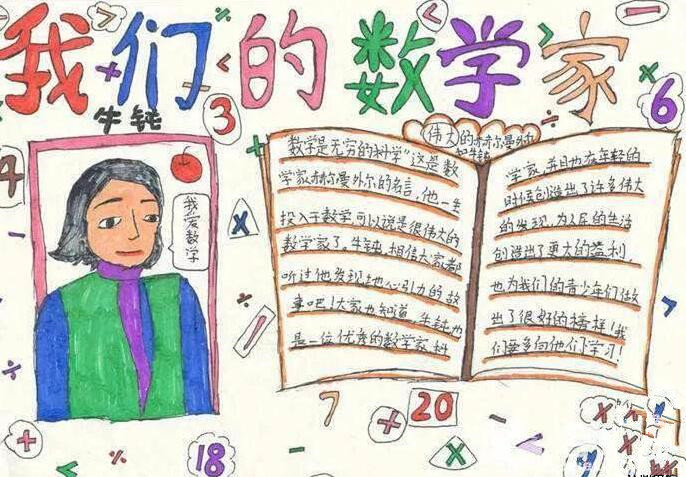 我们的数学家
牛钝
3
6
4
我爱数学
伟大的赫尔曼外尔
和牛钝
"数学是无穷的科学"这是数
学家赫尔曼外尔的名言,他一生
投入于数学可以说是很伟大的
数学家了。牛钝,相信大家都
听过他发现地心引力的故
事吧!大家也知道,牛钝也
是一位优秀的数学家,科
学家,并且也在年轻的
时候创造出了许多伟大
的发现,为人民的生活
创造出了更大的益利,
也为我们的青少年们做
出了很好的榜样!我
们要多向他们学习!
7
20
18